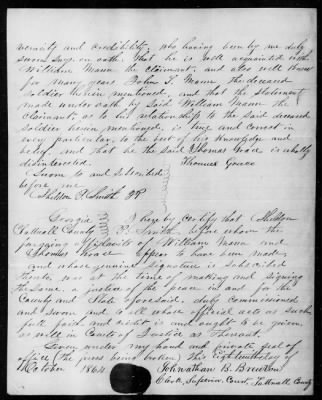 veracity and credibility, who having been by me duly
sworn says on oath, that he is well acquainted with
William Mann the claimant, and also well knew
for many years John T. Mann the deceased
soldier herein mentioned, and that the statement
made under oath by said William Mann the
claimant, as to his relationship to the said deceased
soldier herein mentioned, is true and correct in
every particular, to the best of his knowledge and
belief, and that he the said Thomas Grace is wholly
disinterested. Thomas Grace
Sworn to and subscribed
before me
Shelton P. Smith JP
Georgia } I hereby certify that Shelton
Tattnall County } P. Smith, before whom the
foregoing affidavits of William Mann and
Thomas Grace appear to have been made
and whose genuine signature is subscribed
thereto was at the time of making and signing
the same, a justice of the peace in and for the
County and State aforesaid, duly commissioned
and sworn and to all whose official acts as such
full faith and credit is and ought to be given,
as well in Courts of Justice as thereout.
Given under my hand and private seal of
office (the press being broken) this Eighteenth day of
October 1864 Johnathan B. Brewton
Clerk, Superior Court, Tattnall County